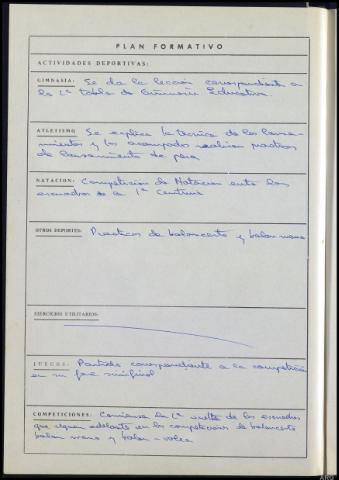 PLAN FORMATIVO
ACTIVIDADES DEPORTIVAS:
GIMNASIA: Se da la lección correspondiente a
la 2ª tabla de Gimnasia Educativa.
ATLETISMO Se explica la tecnica de los lanza-
mientos y los acampados realizan practicas
de lanzamiento de peso
NATACION: Competicion de Natacion entre las
escuadras de la 1ª Centuria
OTROS DEPORTES: Practicas de baloncesto y balon mano
EJERCICIOS UTILITARIOS:
JUEGOS: Partido correspondiente a la competición
en su fase semifinal
COMPETICIONES: Comienza la 2ª vuelta de las escuadras
que siguen adelante en las competiciones de baloncesto
balon mano y balon-volea